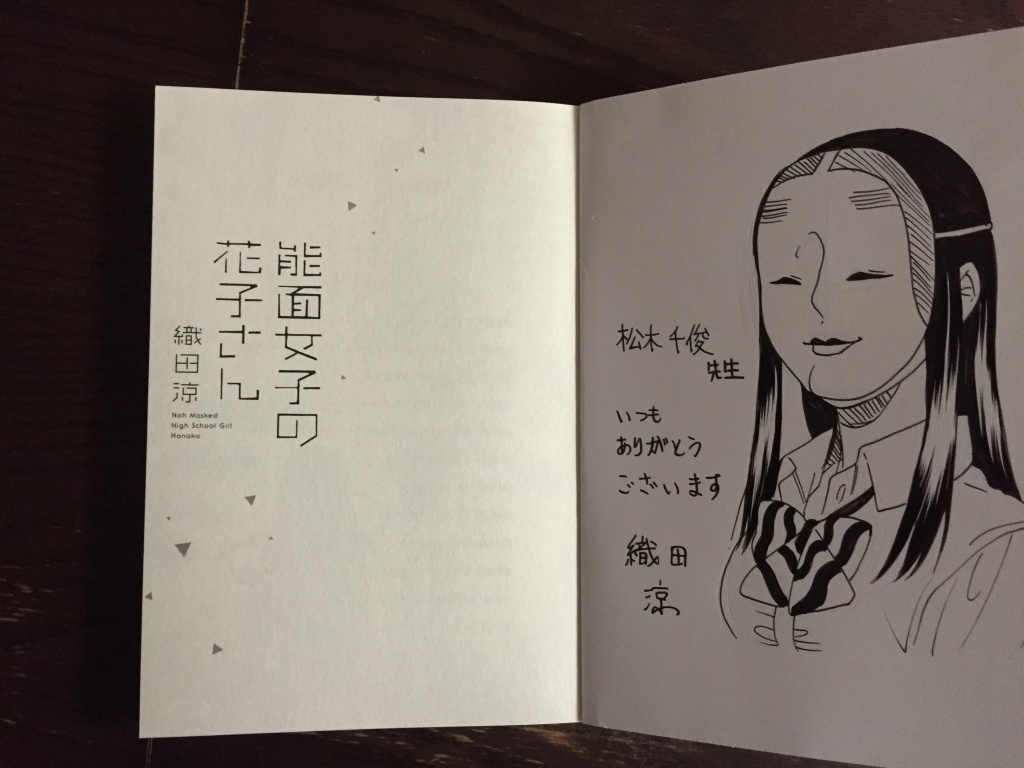 能面女子の
花子さん
織田涼
Noh Masked
High School Girl
Hanako
松木千俊
先生
いつも
ありがとう
ございます
織田
涼